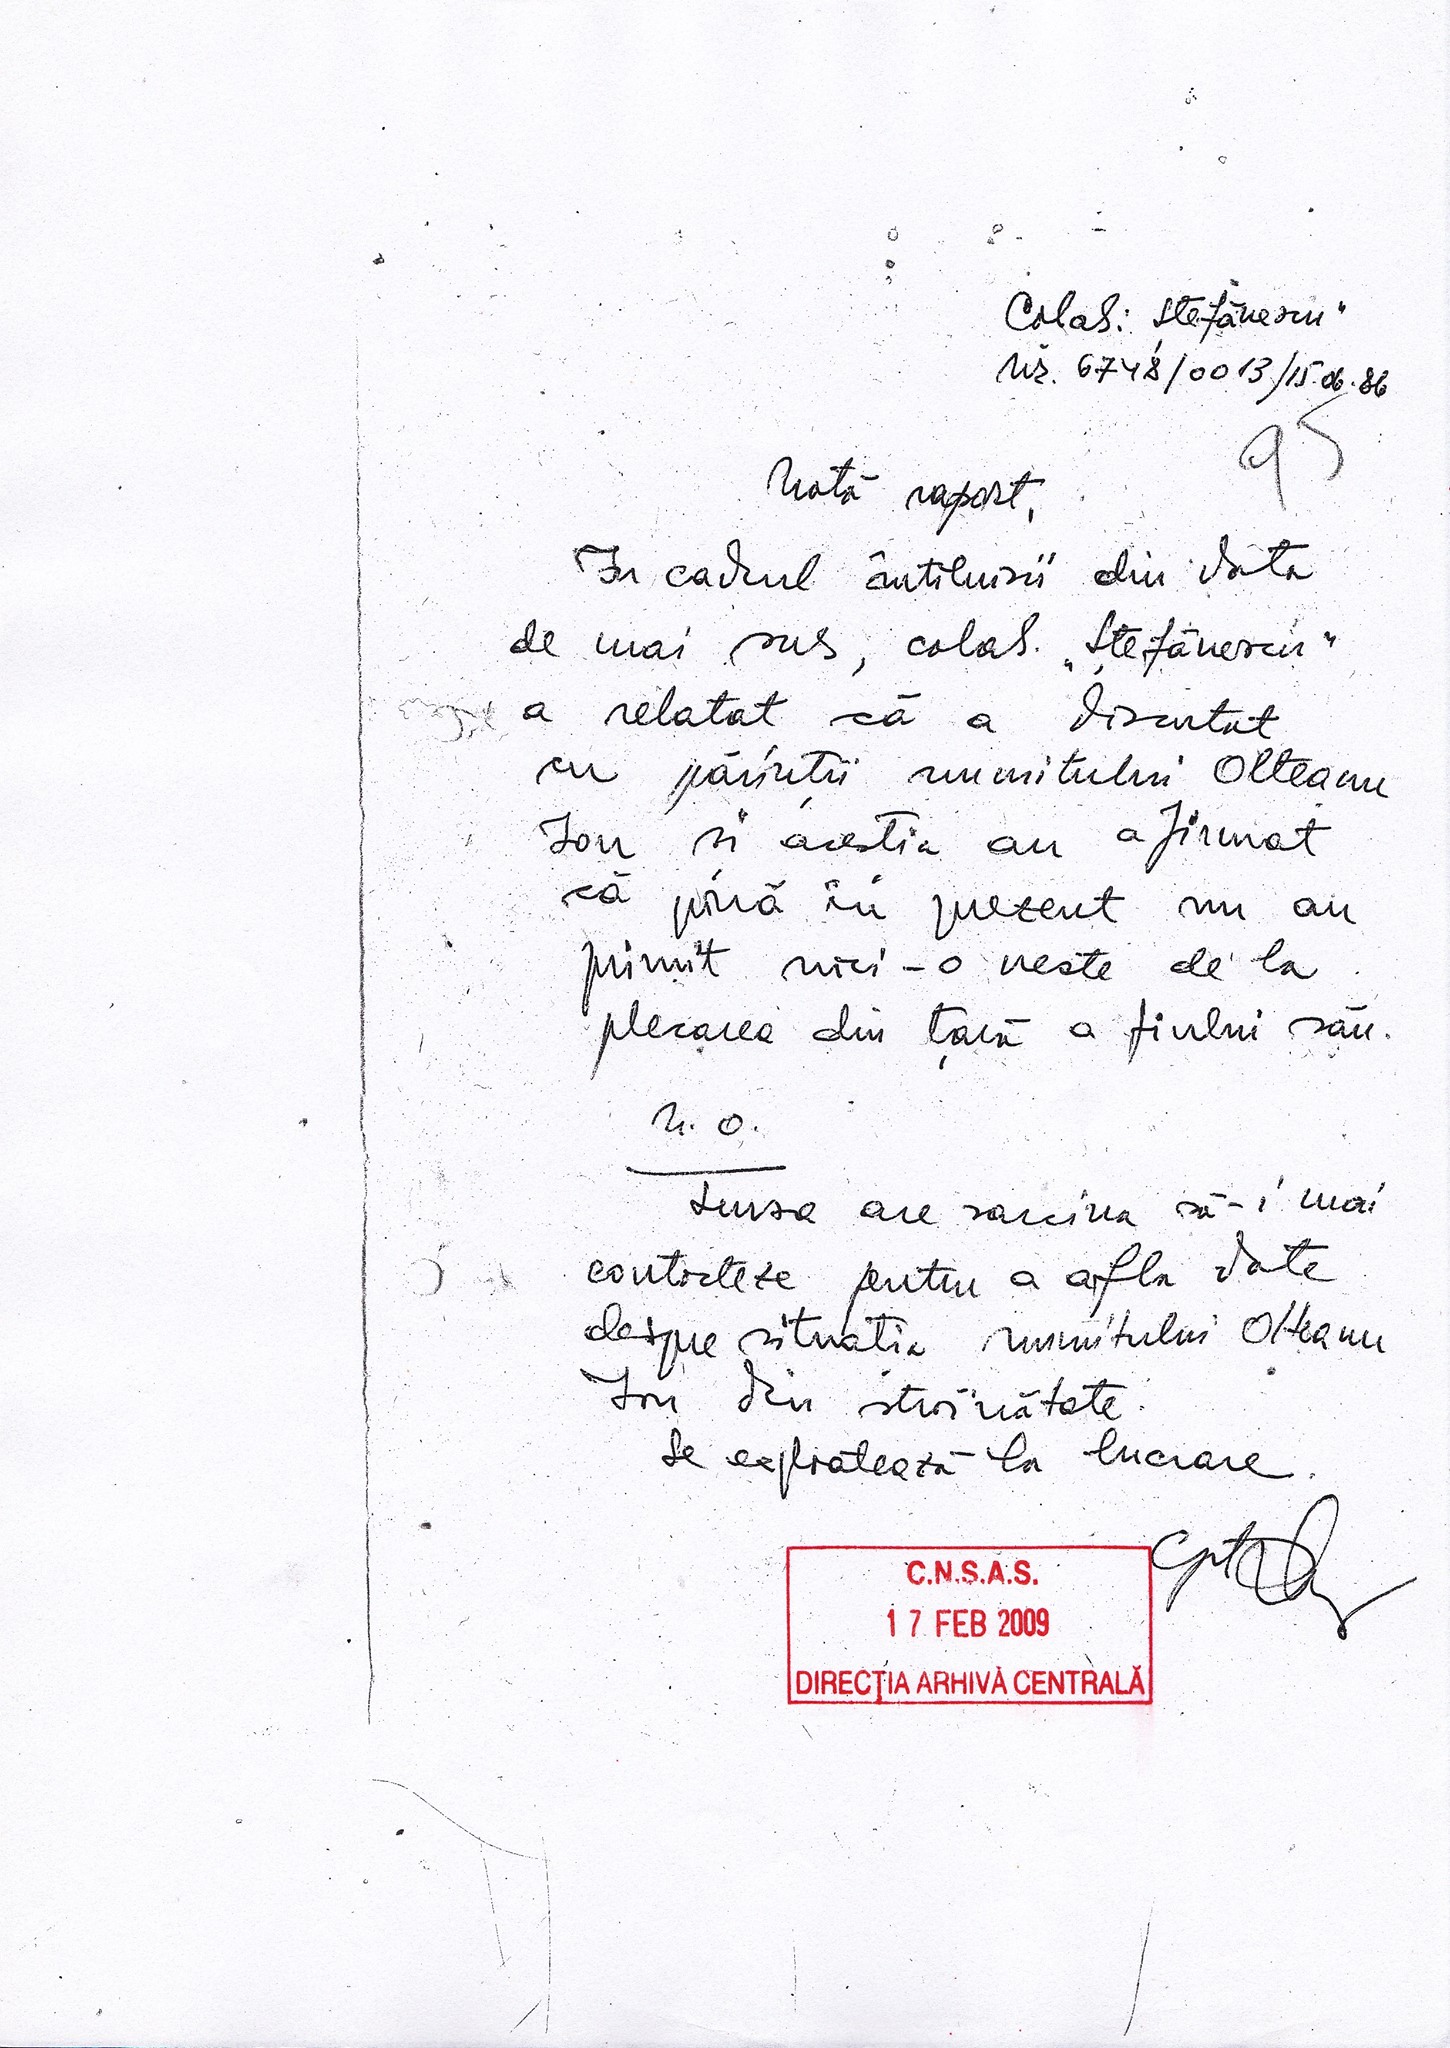 Colab: „Ștefănescu"
Nr. 6748/0013/15.06.86
95
Notă raport,
In cadrul întîlnirii din data
de mai sus, colab. „Ștefănescu"
a relatat că a discutat
cu părinții numitului Olteanu
Ion și aceștia au afirmat
că pînă în prezent nu au
primit nici-o veste de la
plecarea din țară a fiului său.
N.O.
Sursa are sarcina să-i mai
contacteze pentru a afla date
despre situatia numitului Olteanu
Ion din străinătate.
Se exploatează la lucrare.
Cpt.
C.N.S.A.S.
17 FEB 2009
DIRECȚIA ARHIVĂ CENTRALĂ